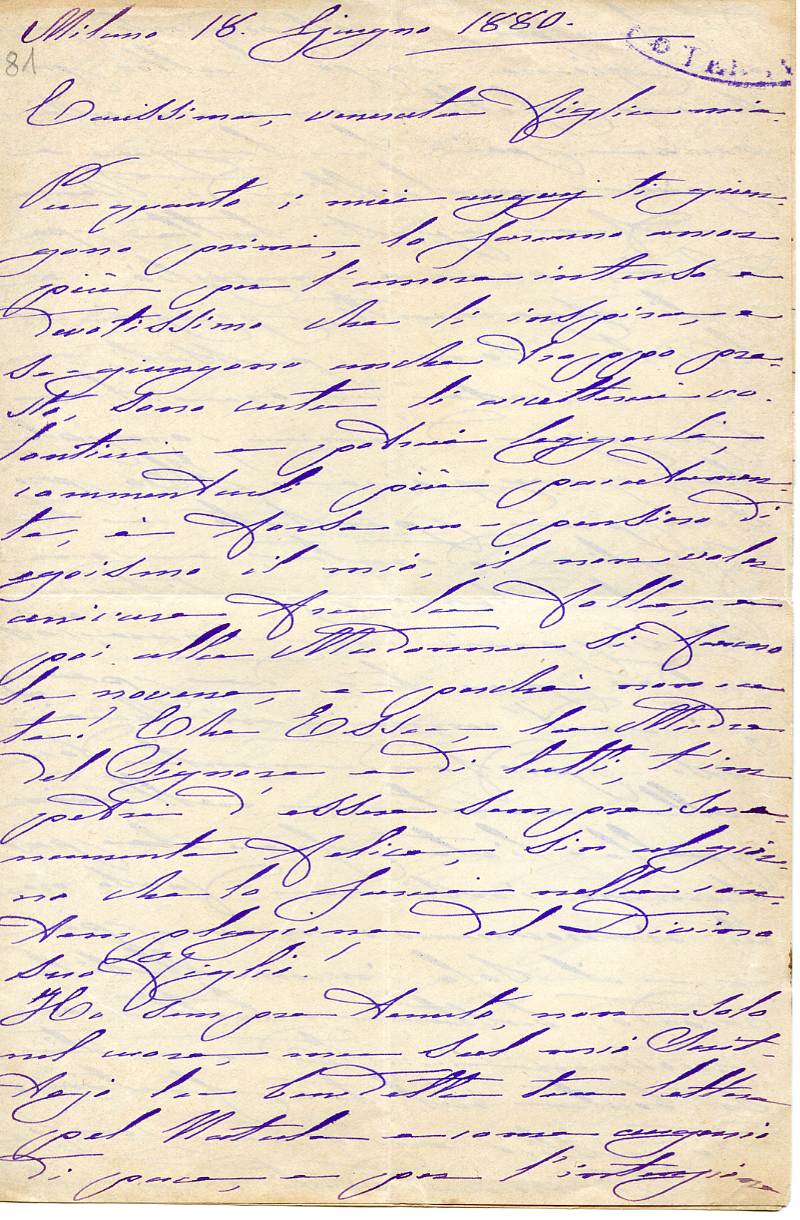 Milano 18. Giugno 1880.
81
Carissima, venerata Figlia mia.
Per quanto i miei augurj ti giun-
gano primi, lo saranno ancor
più per l'amore intenso e
devotissimo che li inspira, e
se giungono anche troppo pre-
sto, sono certa li accetterai vo-
lontieri e potrai leggerli,
commentarli più pacatamen-
te, è forse un pensiero di
egoismo il mio, il non voler
arrivare fra la folla, e
poi alla Madonna si fanno
le novene, e perchè non a
te? Che Essa, la Madre
del Signore e di tutti, t'im
petri d'essere sempre sere-
namente felice, sin al gior-
no che lo sarai nella con-
templazione del Divino
suo Figlio!
Ho sempre tenuto, non solo
nel cuore, ma sul mio Scrit-
tojo la benedetta tua lettera
pel Natale e come augurio
di pace, e per l'intenzione